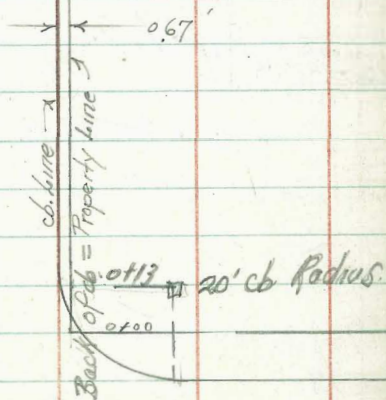 0.67'
cb. Line
Back of cb = Property Line
0+13
20' cb Radius.
0+00